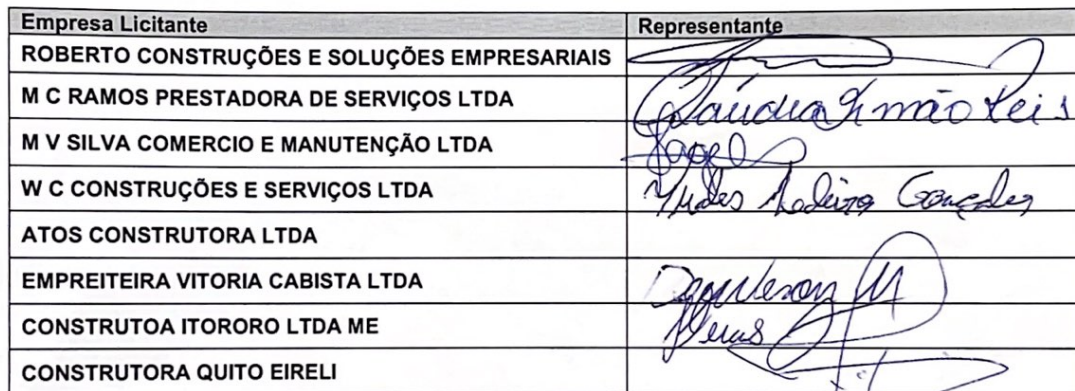 Empresa Licitante Representante
ROBERTO CONSTRUÇÕES E SOLUÇÕES EMPRESARIAIS
M C RAMOS PRESTADORA DE SERVIÇOS LTDA Cláudia Simão Reis
M V SILVA COMERCIO E MANUTENÇÃO LTDA
W C CONSTRUÇÕES E SERVIÇOS LTDA
ATOS CONSTRUTORA LTDA
EMPREITEIRA VITORIA CABISTA LTDA
CONSTRUTOA ITORORO LTDA ME
CONSTRUTORA QUITO EIRELI